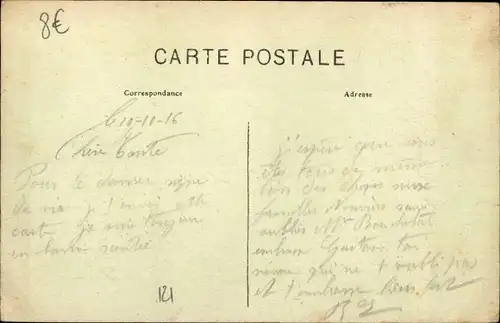 8€
CARTE POSTALE
Correspondance
Adresse
le 10-11-16
Chère Tante
Pour te donner signe
de vie je t'envoi cette
carte je suis toujour
en bonne santée
121
j'espère que vous
êtes tous de même
bon des choses aux
familles sans
oublier Mr
embrasse Gaston ton
neveu qui ne t'oubli pas
et t'embrasse bien fort